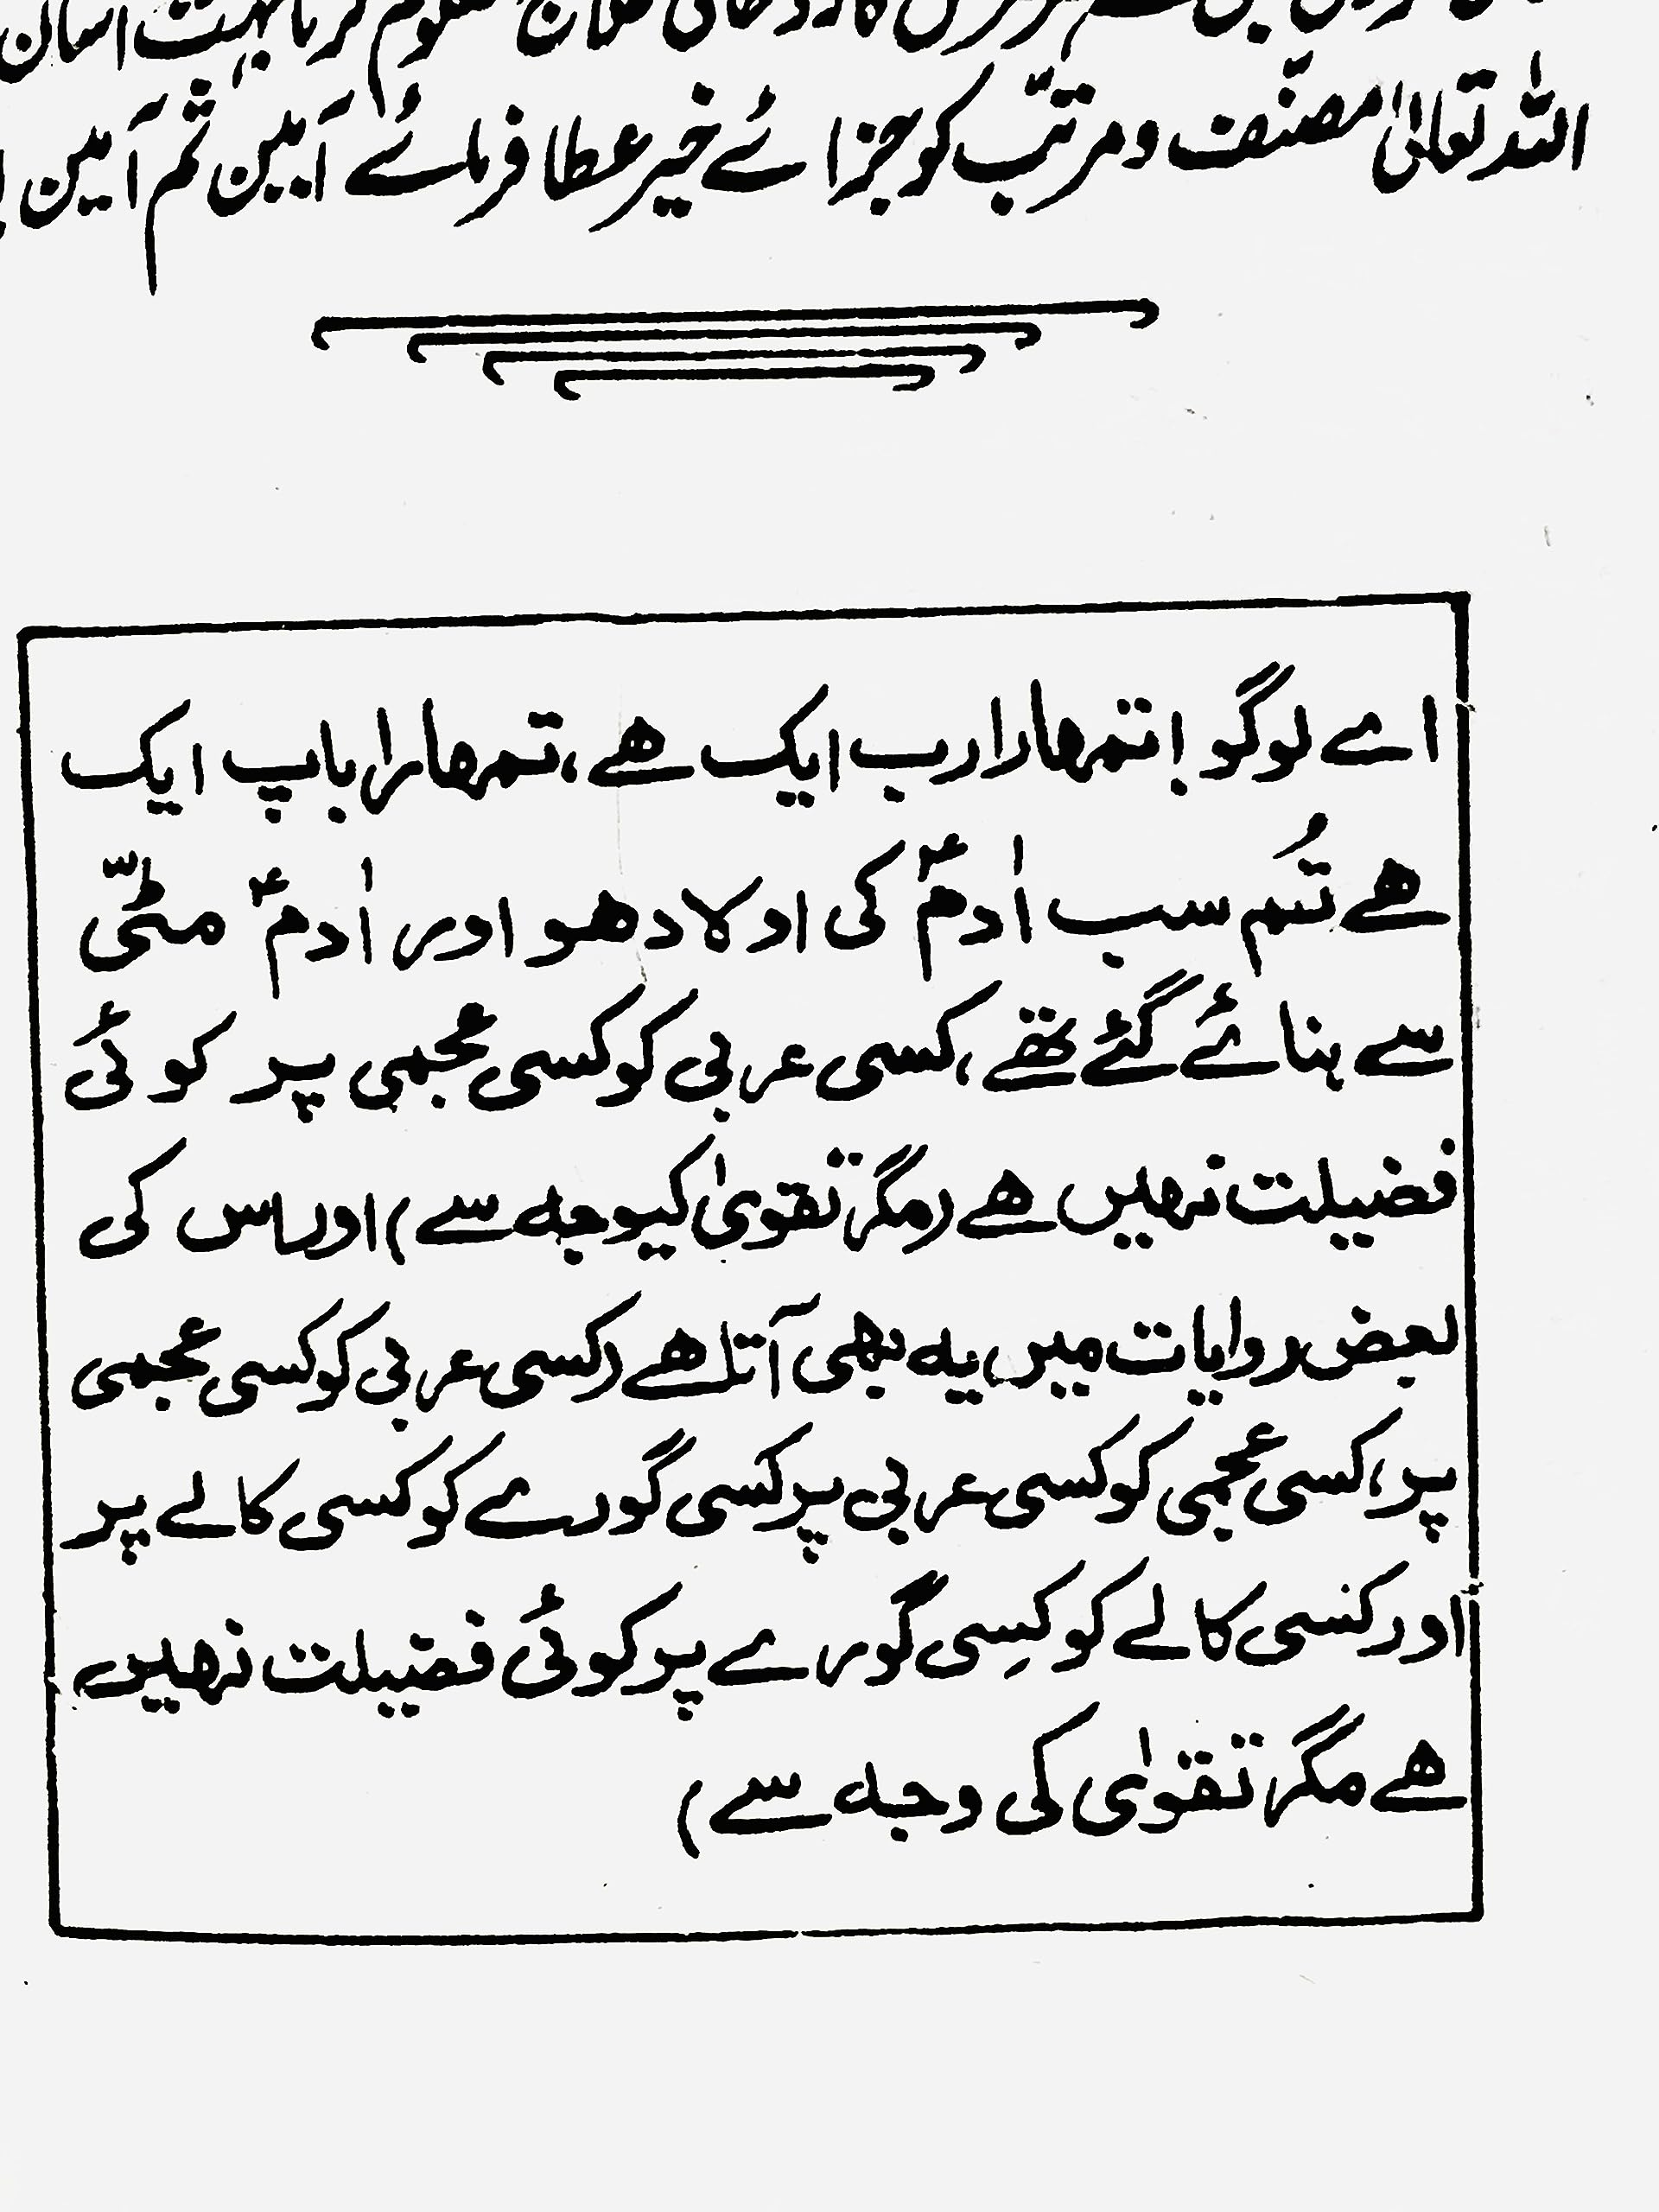 معلوم کرنا بہت آسان
اللہ تعالیٰ مصنّف و مرتّب کو جزائے خیر عطا فرمائے آمین ثم آمین
اے لوگو! تمھارا رب ایک ھے، تمھارا باپ ایک
ھے تُم سب اٰدمؑ کی اولاد ھو اور اٰدمؑ مٹّی
سے بنائے گئے تھے، کسی عربی کو کسی عجمی پر کوئی
فضیلت نھیں ھے (مگر تقویٰ کیوجہ سے) اور اس کی
بعض روایات میں یہ بھی آتا ھے (کسی عربی کو کسی عجمی
پر، کسی عجمی کو کسی عربی پر کسی گورے کو کسی کالے پر
اور کسی کالے کو کِسی گورے پر کوئی فضیلت نھیں
ھے مگر تقویٰ کی وجہ سے)